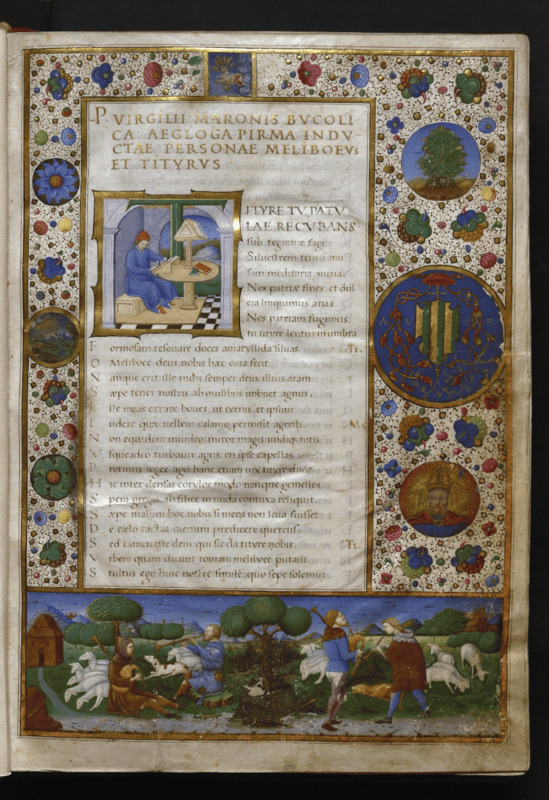 P VIRGILII MARONIS BVCOLI
CA AEGLOGA PIRMA INDV
CTAE PERSONAE MELIBOEVS
ET TITYRVS
ITYRE TV PATV
LAE RECVBANS
sub tegmine fagi
Siluestrem tenui mu
sam meditaris auena.
Nos patriæ fines et dul
cia linquimus arua.
Nos patriam fugimus
tu tityre lentus in umbra
F ormosam resonare doces amaryllida siluas. TI.
O Meliboee deus nobis hæc ocia fecit
N anque erit ille mihi semper deus. illius aram
S æpe tener nostris ab ouilibus imbuet agnus.
I lle meas errare boues ut cernis et ipsum
L udere quæ uellem calamo permisit agresti. Me
N on equidem inuideo miror magis undique totis
V squeadeo turbatur agris. en ipse capellas
P rotinus æger ago. hanc etiam uix tityre duco.
H ic inter densas corylos modo nanque gemellos
S pem gregis ah silice in nuda connixa reliquit.
S æpe malum hoc nobis si mens non leua fuisset
D e cælo tactas memini predicere quercus
S ed tamen iste deus qui sit da tityre nobis. TI.
V rbem quam dicunt romam meliboee putaui
S tultus ego huic nostre similem quo sepe solemus